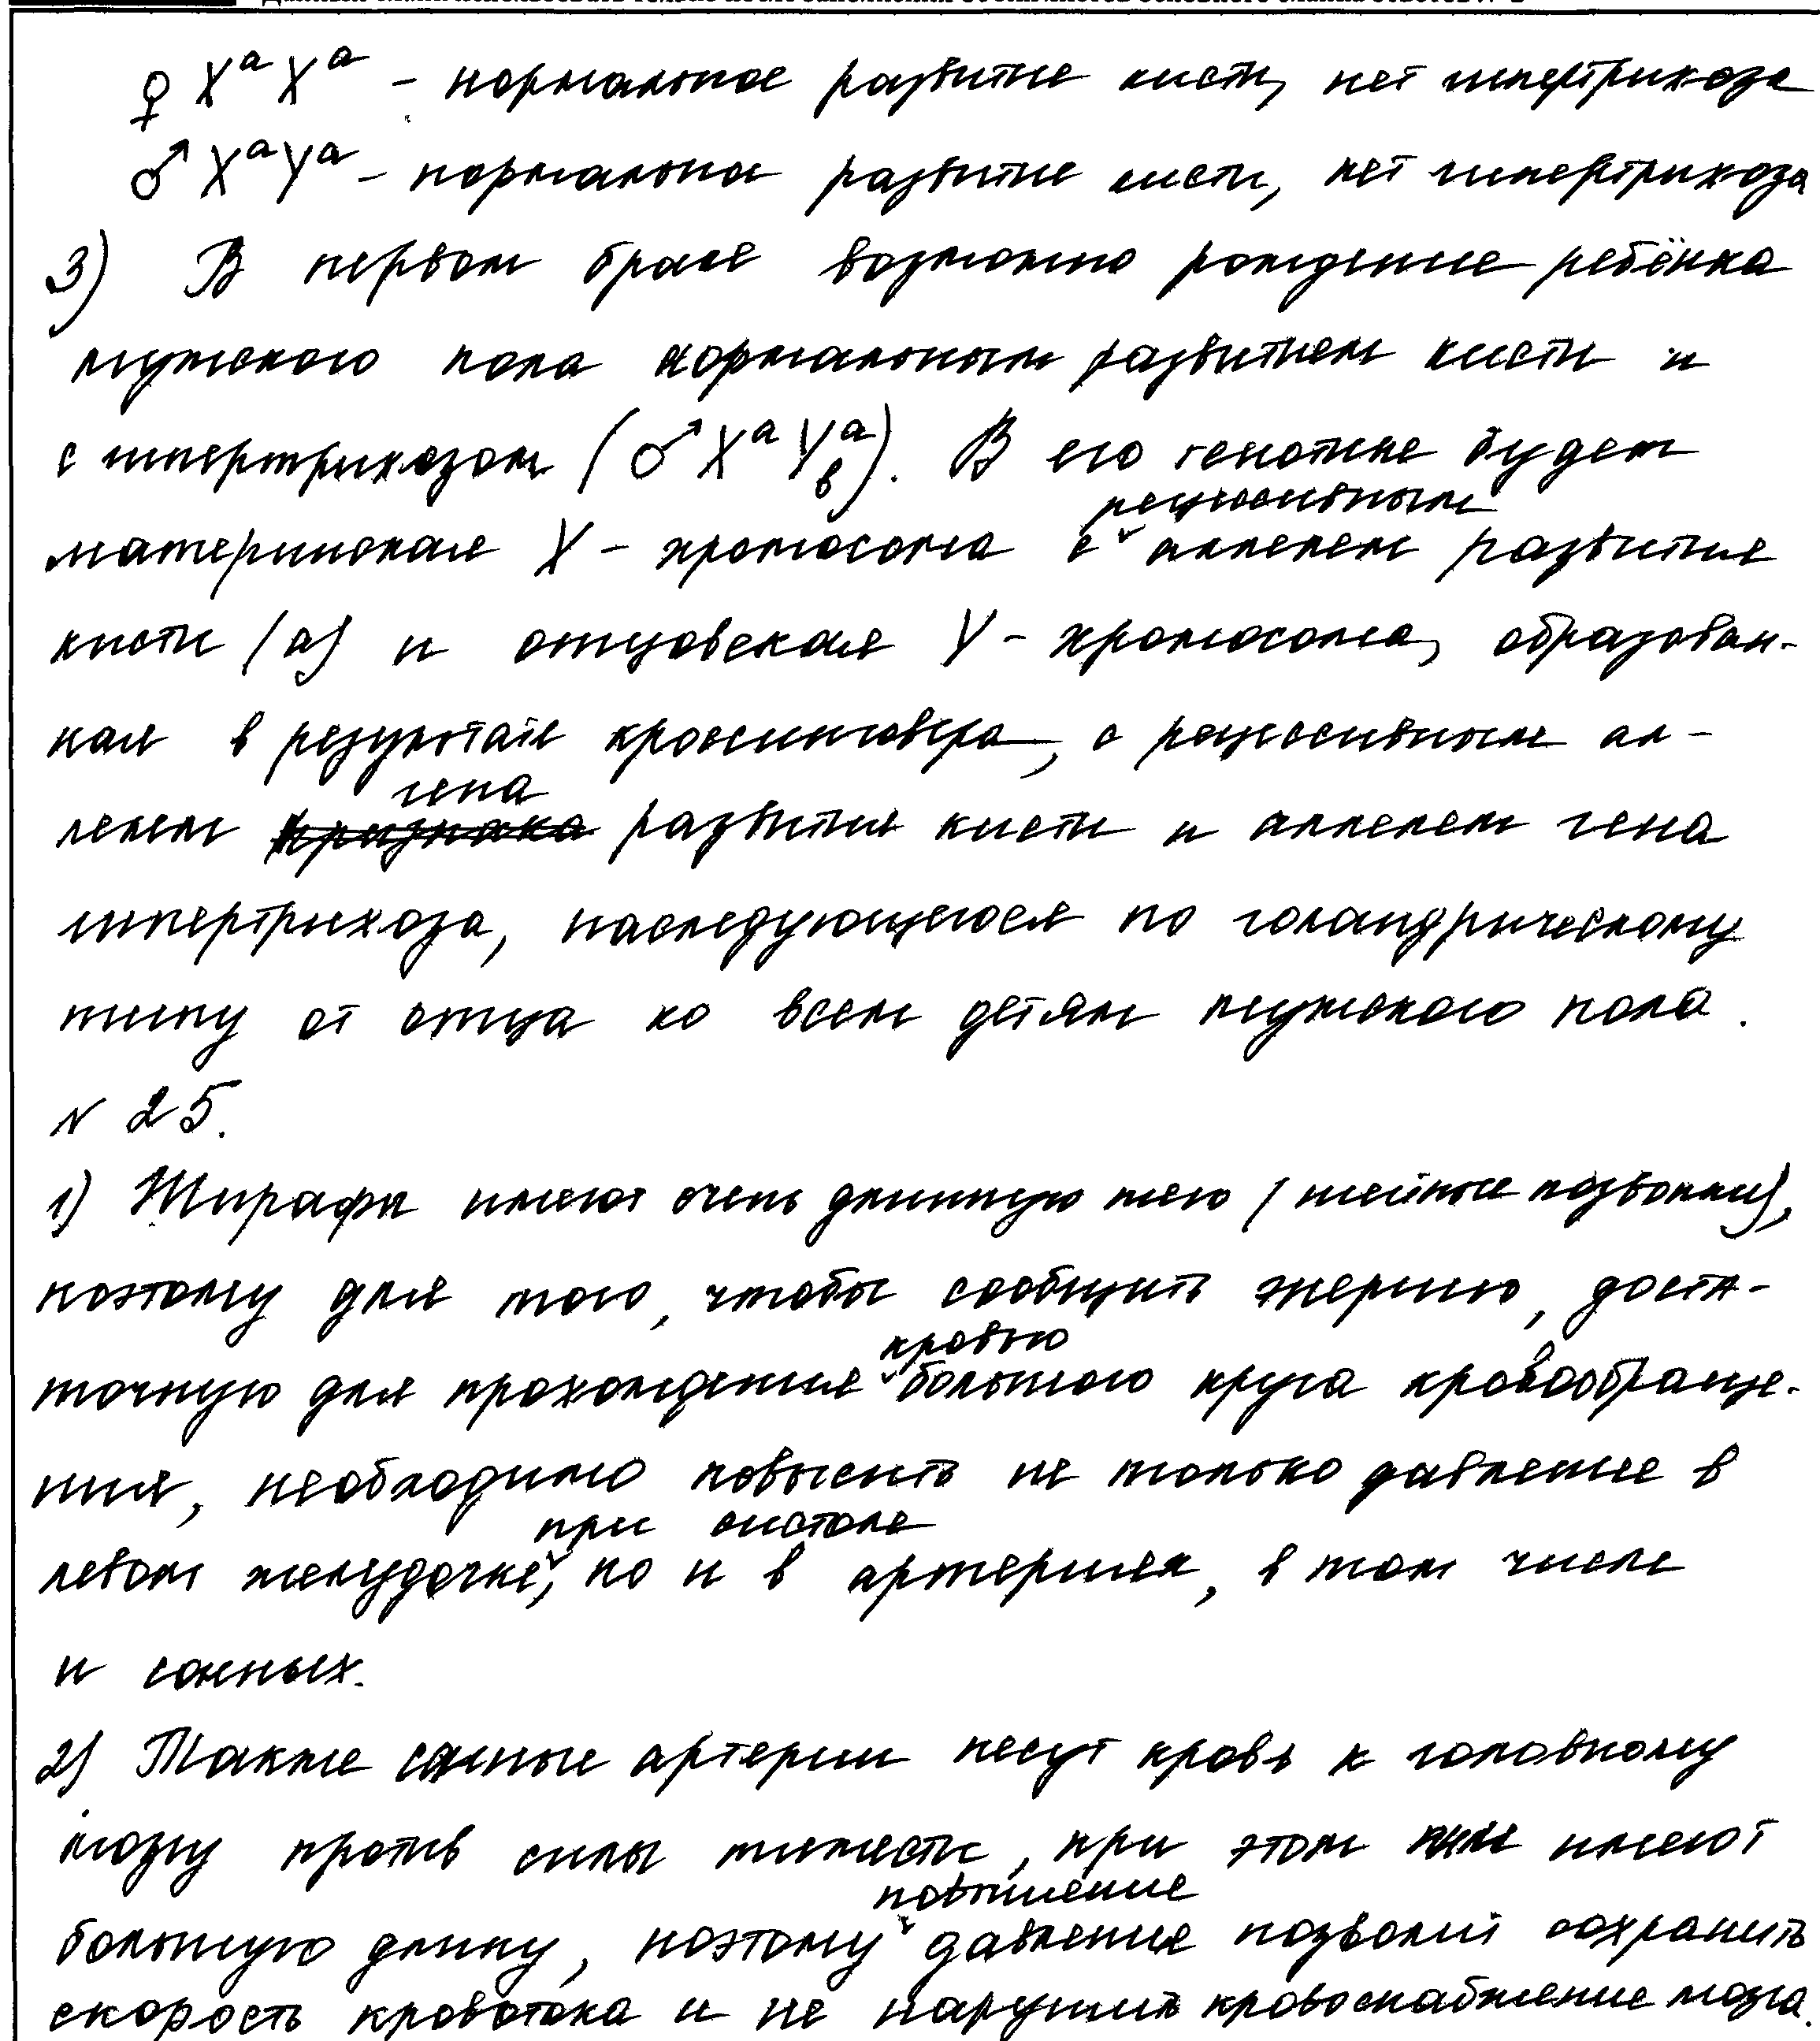 ♀ XᵃXᵃ – нормальное развитие кисти, нет гипертрихоза
♂ XᵃYᵃ – нормальное развитие кисти, нет гипертрихоза
3) В первом браке возможно рождение ребёнка
мужского пола нормальным развитием кисти и
с гипертрихозом (♂ XᵃYᵃb). В его генотипе будет
рецессивным
материнская X – хромосома с аллелем развития
кисти (а) и отцовская Y – хромосома, образован-
ная в результате кроссинговера, с рецессивным ал-
гена
лелем признака развития кисти и аллелем гена
гипертрихоза, наследующегося по голандрическому
типу от отца ко всем детям мужского пола.
N 25.
1) Жирафы имеют очень длинную шею (шейные позвонки),
поэтому для того, чтобы сообщить энергию, доста-
кровью
точную для прохождения большого круга кровообраще-
ния, необходимо повысить не только давление в
при систоле
левом желудочке, но и в артериях, в том числе
и сонных.
2) Также сонные артерии несут кровь к головному
мозгу против силы тяжести, при этом имеют
повышение
большую длину, поэтому давления позволит сохранить
скорость кровотока и не нарушить кровоснабжение мозга.